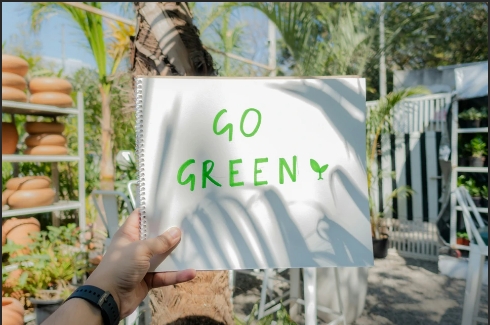 GO
GREEN